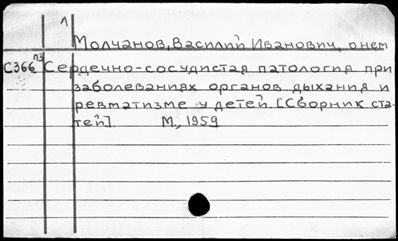 Л
Молчанов, Василий Иванович, о нем
С366 п3 Сердечно-сосудистая патология при
заболеваниях органов дыхания и
ревматизме у детей. [Сборник ста-
тей]. М., 1959